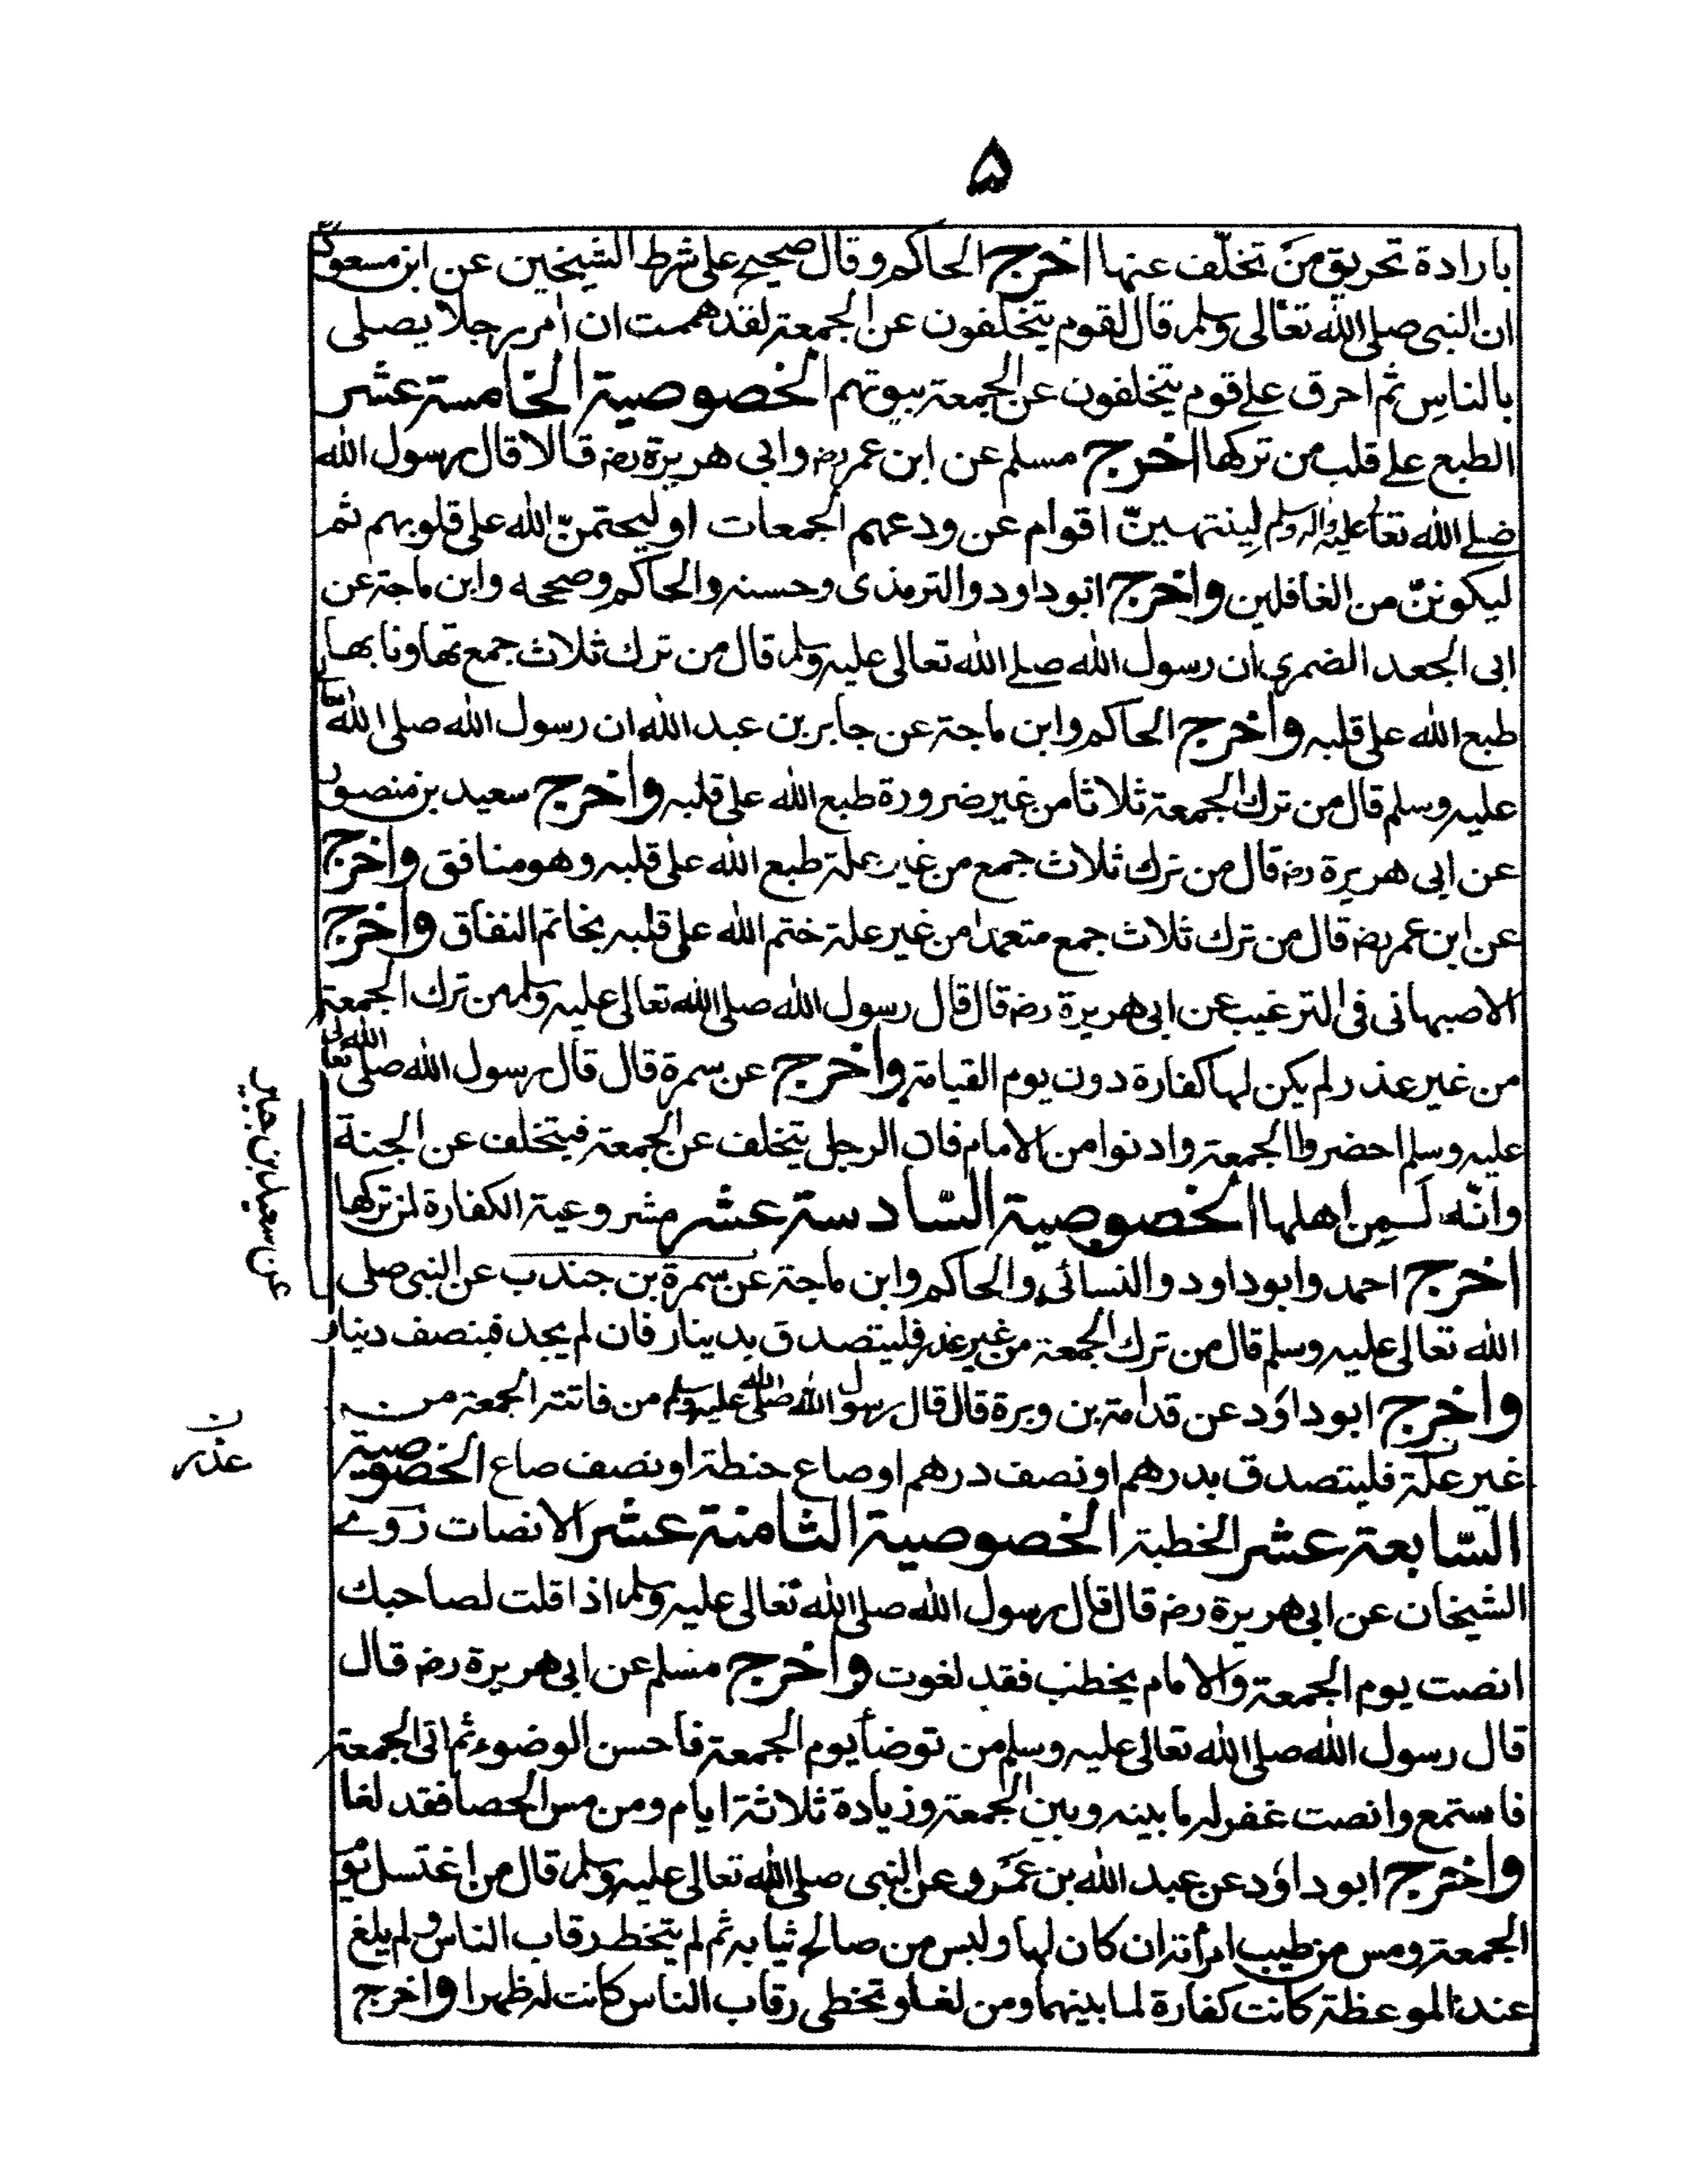 ۵
بارادة تحريق من تخلّف عنها اخرج الحاكم وقال صحيح على شرط الشيخين عن ابن مسعود
ان النبى صلى الله تعالى وسلم قال لقوم يتخلفون عن الجمعة لقد هممت ان اٰمر رجلا يصلى
بالناس ثم احرق على قوم يتخلفون عن الجمعة بيوتهم الخصوصية الخامسة عشر
الطبع على قلب من تركها اخرج مسلم عن ابن عمر رضـ وابى هريرة رضـ قالا قال رسول الله
صلى الله تعا عليه واله وسلم لينتهينّ اقوام عن ودعهم الجمعات او ليختمنّ الله على قلوبهم ثم
ليكوننّ من الغافلين واخرج ابوداود والترمذى وحسنه والحاكم وصححه وابن ماجة عن
ابى الجعد الضمري ان رسول الله صلے الله تعالى عليه وسلم قال من ترك ثلاث جمع تهاونا بها
طبع الله على قلبه واخرج الحاكم وابن ماجة عن جابر بن عبد الله ان رسول الله صلى الله تعالى
عليه وسلم قال من ترك الجمعة ثلاثا من غير ضرورة طبع الله على قلبه واخرج سعيد بن منصور
عن ابى هريرة رضـ قال من ترك ثلاث جمع من غير علة طبع الله على قلبه وهو منافق واخرج
عن ابن عمر رضـ قال من ترك ثلاث جمع متعمدا من غير علة ختم الله على قلبه بخاتم النفاق واخرج
الاصبهانى فى الترغيب عن ابى هريرة رضـ قال قال رسول الله صلى الله تعالى عليه وسلم من ترك الجمعة
من غير عذر لم يكن لها كفارة دون يوم القيامة واخرج عن سمرة قال قال رسول الله صلى الله تعالى
عليه وسلم احضروا الجمعة وادنوا من الامام فان الرجل يتخلف عن الجمعة فيتخلف عن الجنة
وانّه لَمِن اهلها الخصوصية السّادسة عشر مشروعية الكفارة لمن تركها
اخرج احمد وابوداود والنسائى والحاكم وابن ماجة عن سمرة بن جندب عن النبى صلى
الله تعالى عليه وسلم قال من ترك الجمعة من غير عذر فليتصدق بدينار فان لم يجد فبنصف دينار
واخرج ابوداوٗد عن قدامة بن وبرة قال قال رسول الله صلى الله عليه وسلم من فاتته الجمعة من
غير علّة فليتصدق بدرهم او نصف درهم او صاع حنطة او نصف صاع الخصوصية
السّابعة عشر الخطبة الخصوصية الثامنة عشر الانصات روٰے
الشيخان عن ابى هريرة رضـ قال قال رسول الله صلى الله تعالى عليه وسلم اذا قلت لصاحبك
انصت يوم الجمعة والامام يخطب فقد لغوت واخرج مسلم عن ابى هريرة رضـ قال
قال رسول الله صلى الله تعالى عليه وسلم من توضأ يوم الجمعة فاحسن الوضوء ثم اتى الجمعة
فاستمع وانصت غفر له ما بينه وبين الجمعة وزيادة ثلاثة ايام ومن مس الحصا فقد لغا
واخرج ابوداوٗد عن عبد الله بن عمرو عن النبى صلى الله تعالى عليه وسلم قال من اغتسل يوم
الجمعة ومس من طيب امرأته ان كان لها ولبس من صالح ثيابه ثم لم يتخط رقاب الناس ولم يلغ
عند الموعظة كانت كفارة لما بينهما ومن لغا وتخطى رقاب الناس كانت له ظهرا واخرج
عن سعيد بن جبير
ن
عذر